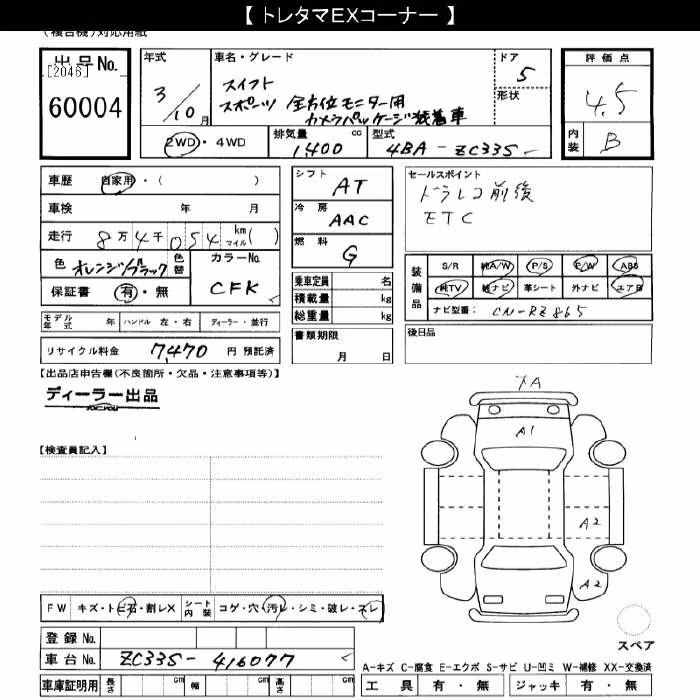 【 トレタマEXコーナー 】
(複合機)対応用紙
出品No.
[2046]
60004
年式
3/10月
車名・グレード
スイフト
スポーツ 全方位モニター用
カメラパッケージ装着車
ドア
5
形状
評価点
4.5
内装
B
2WD・4WD
排気量
1,400 cc
型式
4BA-ZC33S-
車歴 自家用・( )
車検 年 月
走行 8万4千054 km マイル( )
色 オレンジ/ブラック 色替
カラーNo.
CFK
保証書 有・無
モデル年式 年 ハンドル 左・右 ディーラー・並行
リサイクル料金 7,470 円 預託済
シフト AT
冷房 AAC
燃料 G
乗車定員 名
積載量 kg
総重量 kg
書類期限
月 日
セールスポイント
ドラレコ前後
ETC
装備品
S/R 純A/W P/S P/W ABS
純TV 純ナビ 革シート 外ナビ エアB
ナビ型番: CN-RZ865
後日品
【出品店申告欄(不良箇所・欠品・注意事項等)】
ディーラー出品
【検査員記入】
A1
A2
A2
FW キズ・トビ石・割レX シート内装 コゲ・穴・汚レ・シミ・破レ・スレ
登録No.
車台No. ZC33S-416077
車庫証明用 長さ cm 幅 cm 高さ cm
スペア
A-キズ C-腐食 E-エクボ S-サビ U-凹ミ W-補修 XX-交換済
工具 有・無 ジャッキ 有・無